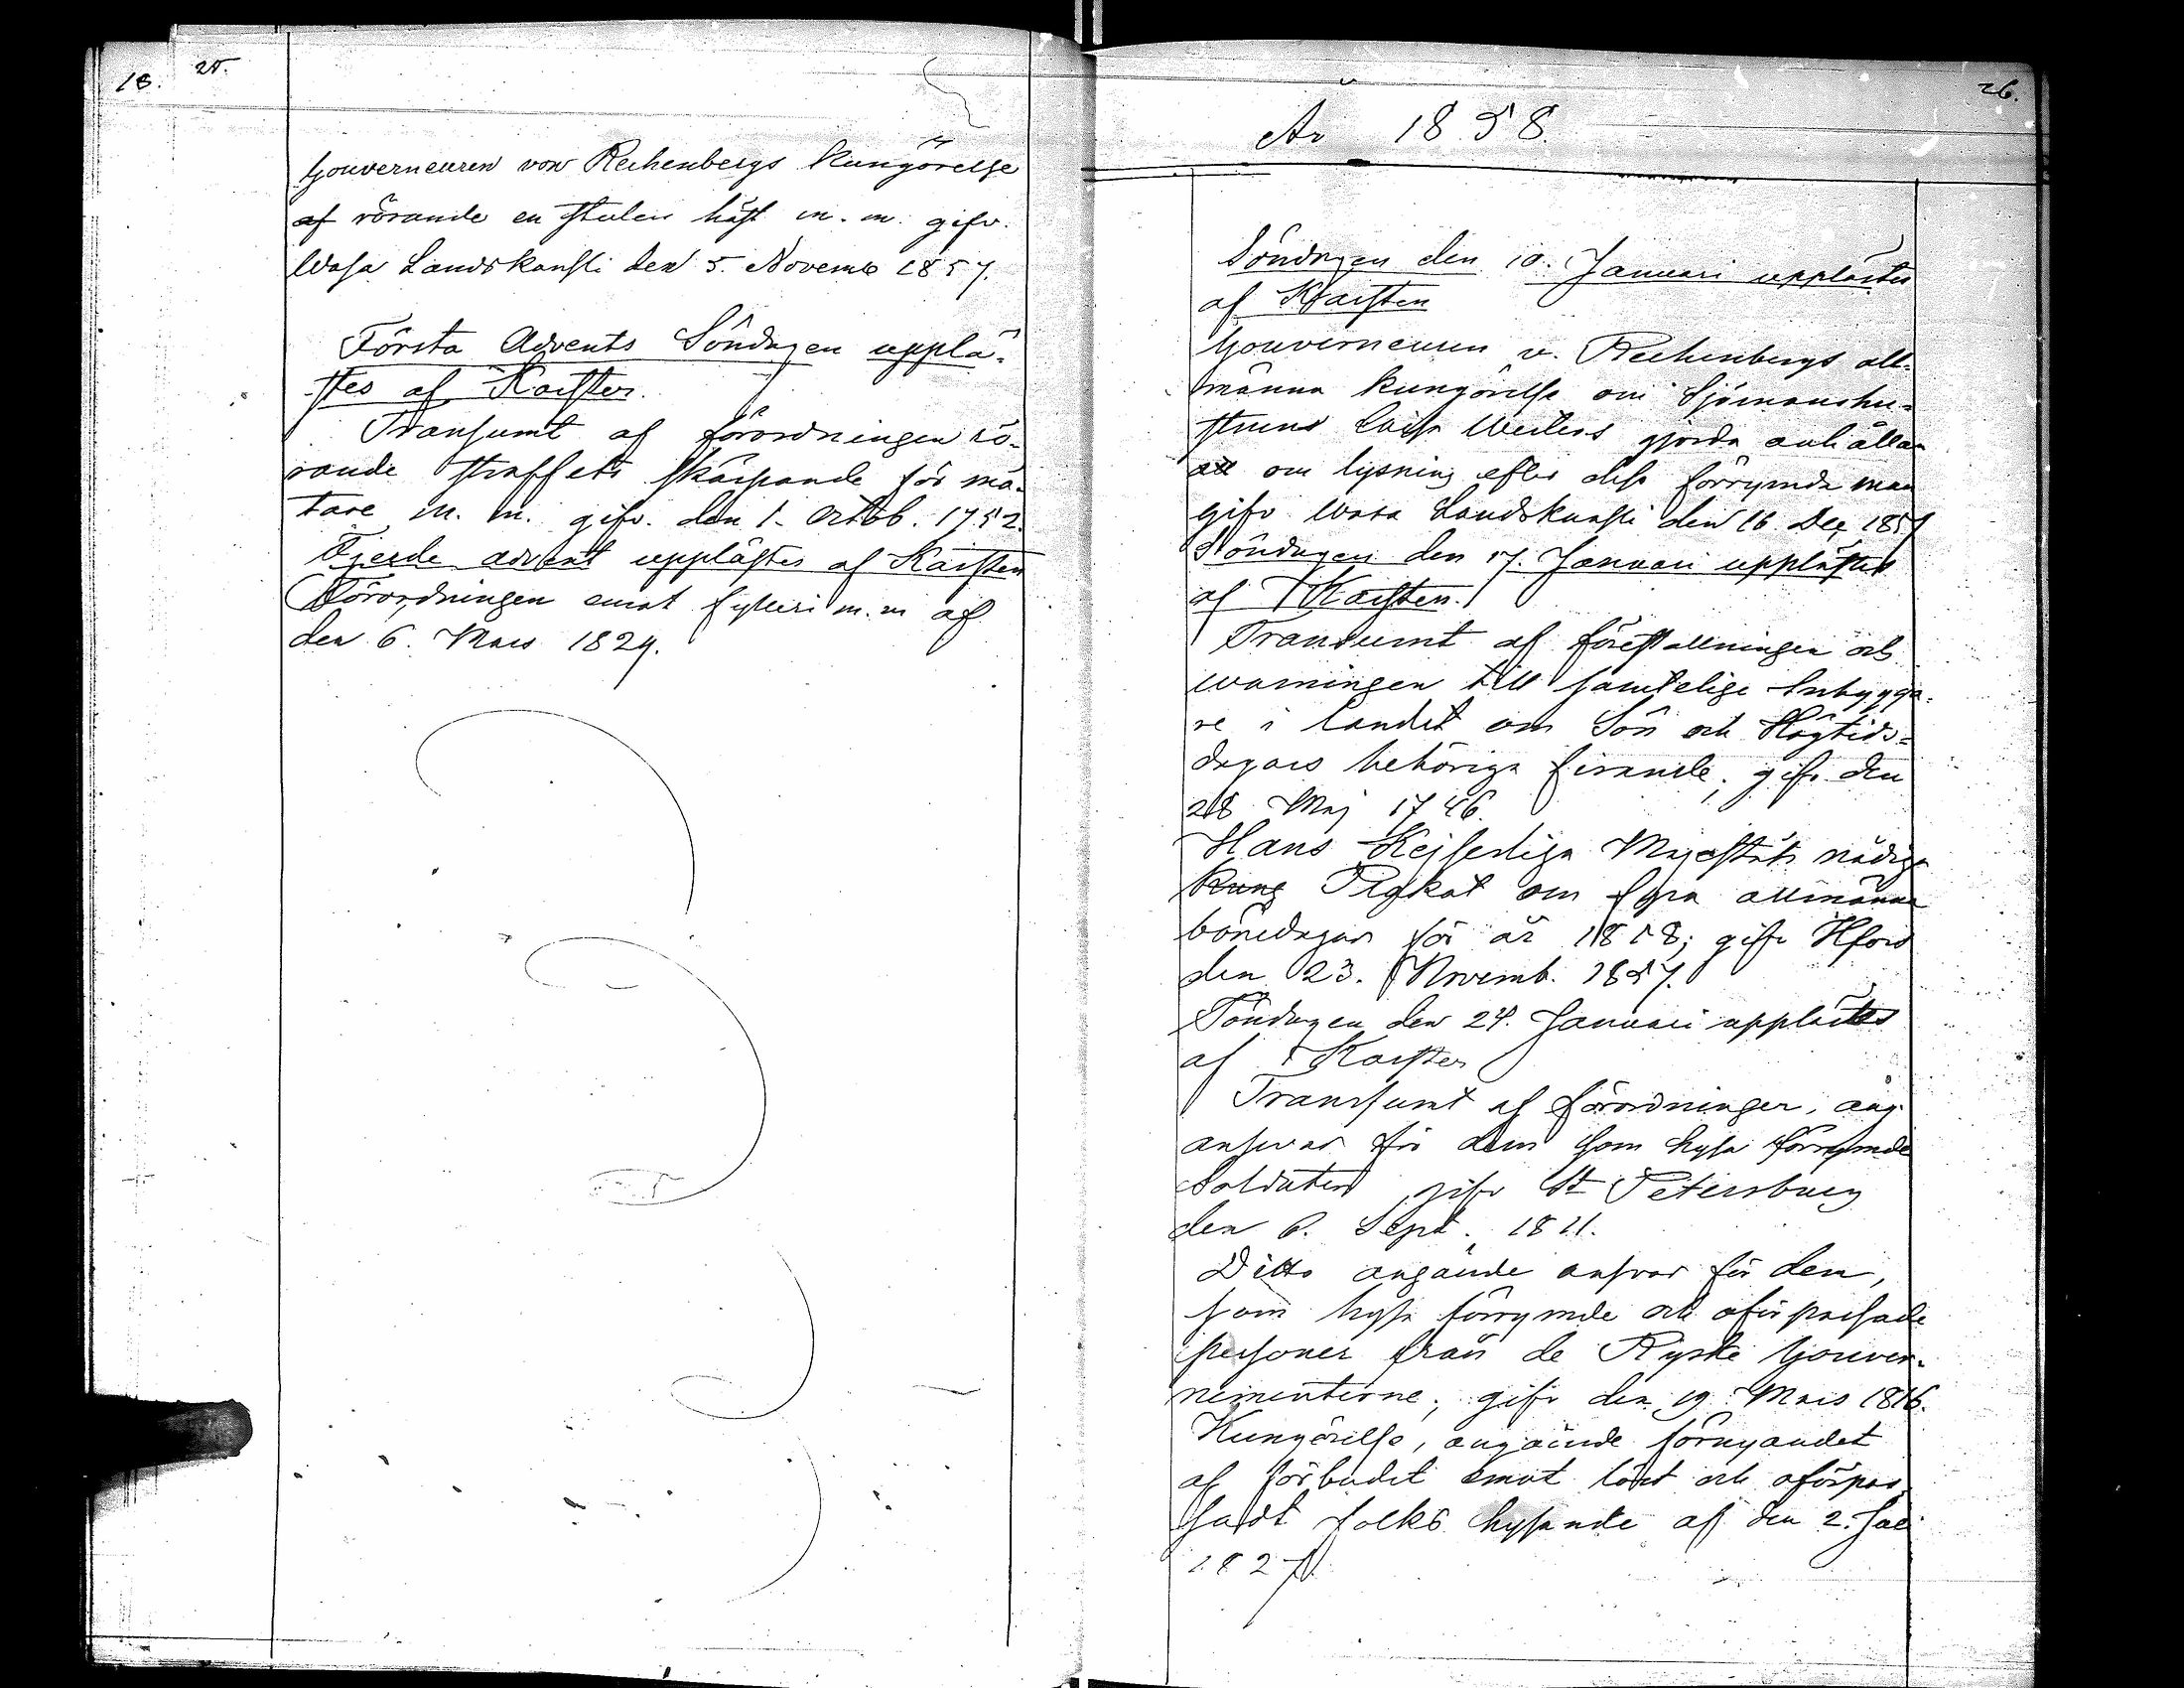 18. 25.
Gouverneuren von Rechenbergs Kungörelse
af rörande en stulen häst m. m. gifv.
Wasa Landskansli den 5. Novemb 1857.
Första Advents Söndagen upplä-
stes af Karsten.
Transumt af förordningen rö-
rande straffets skärpande för mä-
tare m. m. gifv. den 1. Octob. 1752.
Fjerde advent upplästes af Karsten
Förordningen emot fylleri m. m af
den 6. Mars 1829.
26.
År 1858.
Söndagen den 10. Januari upplästes
af Karsten
Gouverneuren v. Rechenbergs all-
männa kungörelse om Sjömanshu-
struns Lovisa gjorda anhållan
att om lysning efter dess förrymda man
gifv Wasa Landskansli den 16. Dec. 1857
Söndagen den 17. Januari upplästes
af Karsten.
Transumt af föreställningen och
warningen till samtelige Inbygga-
re i landet om Sön och Högtids-
dagars behöriga firande; gifv. den
28 Maj 1746.
Hans Kejserliga Majestäts nådiga
Kung Plakat om fyra allmänna
bönedagar för år 1858; gifv Hfors
den 23. Novemb. 1857.
Söndagen den 24. Januari upplästes
af Karsten
Transumt af förordningen, ang.
answar för dem som hysa förrymde
Soldater, gifv St Petersburg
den 6. Sept. 1811.
Ditto angående answar för den,
som hysa förrymde och oförpassade
personer från de Ryske Gouver-
nementerne; gifv den 19 Mars 1816.
Kungörelse, angående förnyandet
af förbudet emot löst och oförpas-
sadt folks hysande af den 2. Juli
1827.